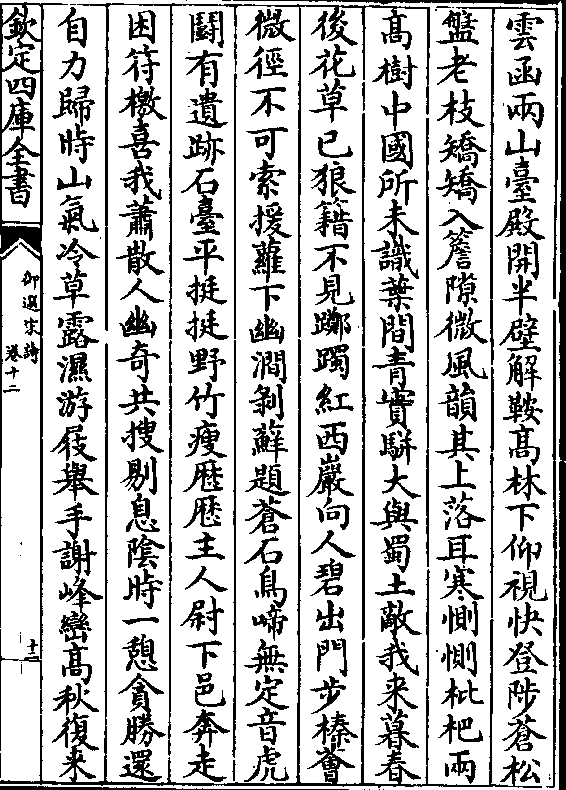 雲函兩山臺殿開半壁解鞍髙林下仰視快登陟蒼松
盤老枝矯矯入簷隙微風韻其上落耳寒惻惻枇杷兩
髙樹中國所未識葉間青實駢大與蜀土敵我来暮春
後花草已狼籍不見躑躅紅西巖向人碧出門步榛薈
微徑不可索援蘿下幽澗剝蘚題蒼石鳥啼無定音虎
鬭有遺跡石臺平挺挺野竹瘦歴歴主人尉下邑奔走
困符檄喜我蕭散人幽奇共搜剔息陰時一憩貪勝還
自力歸時山氣冷草露濕游屐舉手謝峰巒髙秋復来
欽定四庫全書
御選宋詩
卷十二
十二